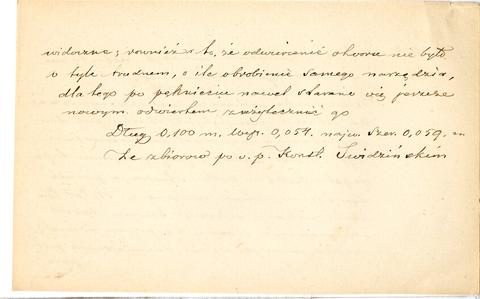 widoczne; również i to, że odwiercenie otworu nie było
o tyle trudnem, o ile obrobienie samego narzędzia,
dla tego po pęknięciu nawet starano się jeszcze
nowym odwiertem zużytecznić go
Dług. 0,100 m. wys. 0,054. najw. szer. 0,059. m
Ze zbiorów po ś. p. Konst. Świdzińskim